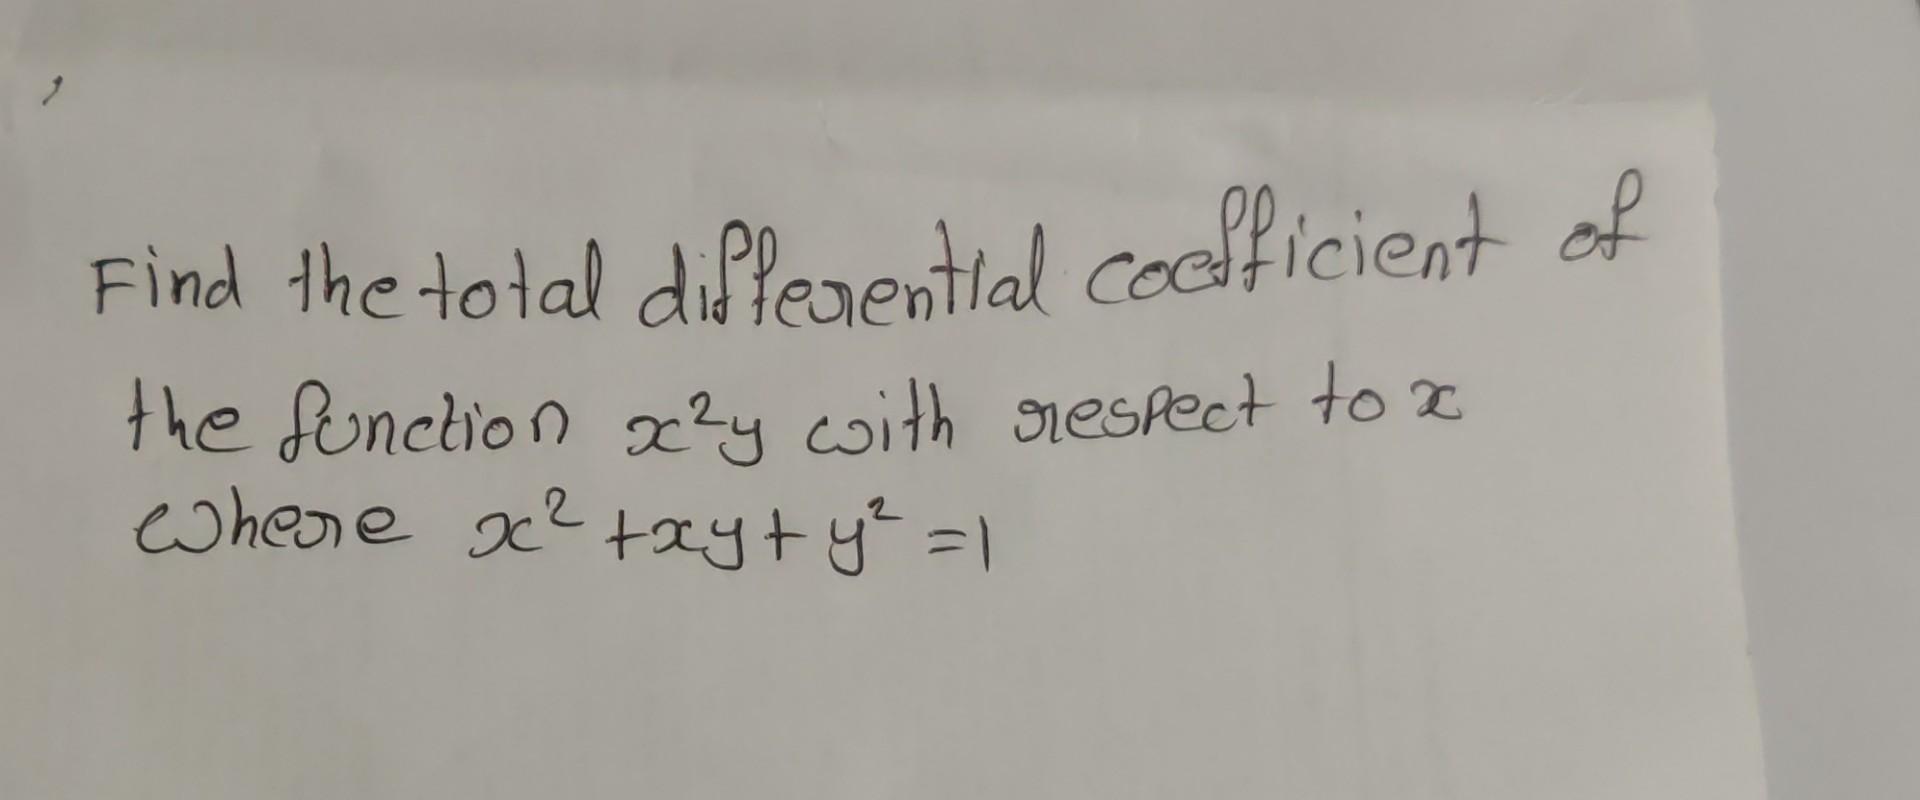 Find the total differential coefficient of
the function x²y with respect to x
where x² + xy + y² = 1